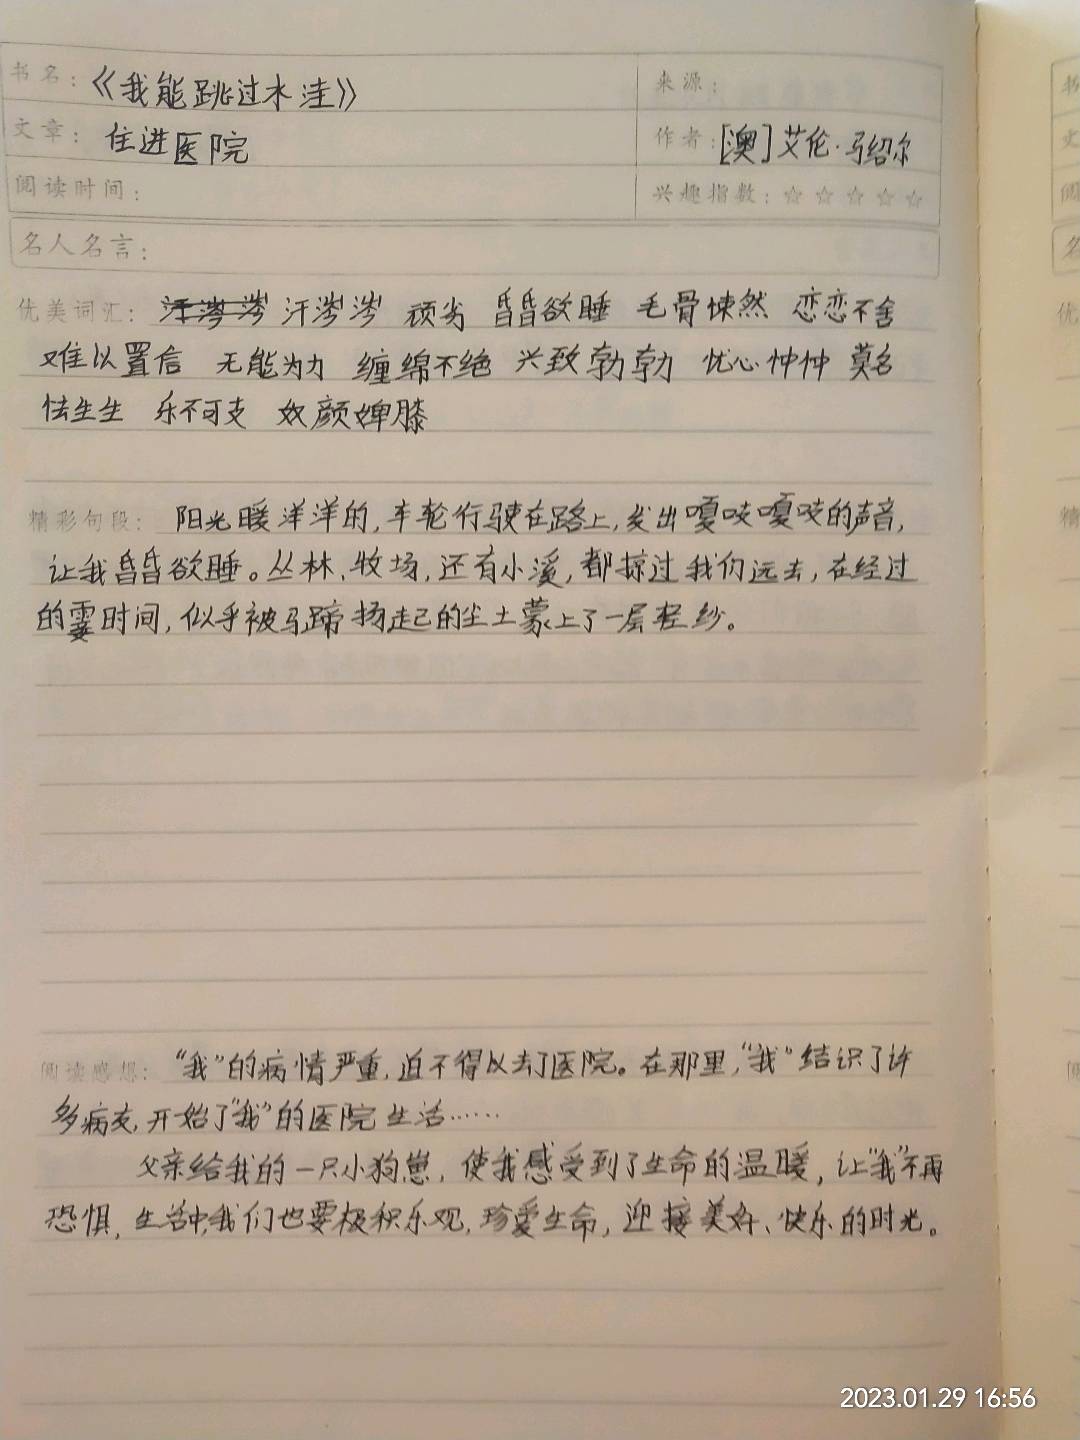 书名：《我能跳过水洼》 来源：
文章：住进医院 作者：[澳]艾伦·马绍尔
阅读时间： 兴趣指数：☆☆☆☆☆
名人名言：
优美词汇： 汗涔涔 顽劣 昏昏欲睡 毛骨悚然 恋恋不舍
难以置信 无能为力 缠绵不绝 兴致勃勃 忧心忡忡 莫名
怯生生 乐不可支 奴颜婢膝
精彩句段： 阳光暖洋洋的，车轮行驶在路上，发出嘎吱嘎吱的声音，
让我昏昏欲睡。丛林、牧场，还有小溪，都掠过我们远去，在经过
的霎时间，似乎被马蹄扬起的尘土蒙上了一层轻纱。
阅读感想： “我”的病情严重，迫不得以去了医院。在那里，“我”结识了许
多病友，开始了“我”的医院生活……
父亲给我的一只小狗崽，使我感受到了生命的温暖，让“我”不再
恐惧，生活中，我们也要极积乐观，珍爱生命，迎接美好、快乐的时光。
书
文
阅
名
优
精
阅
2023.01.29 16:56